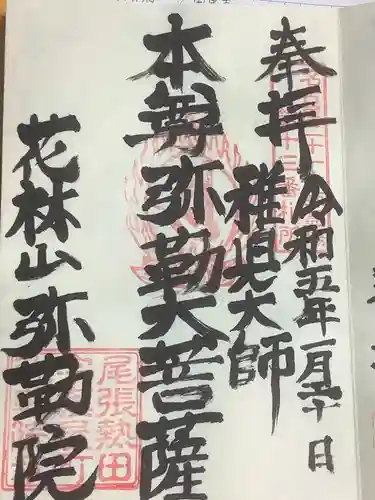 奉拝
令和五年一月二十日
稚児大師
本尊弥勒大菩薩
花林山弥勒院
尾張熱田